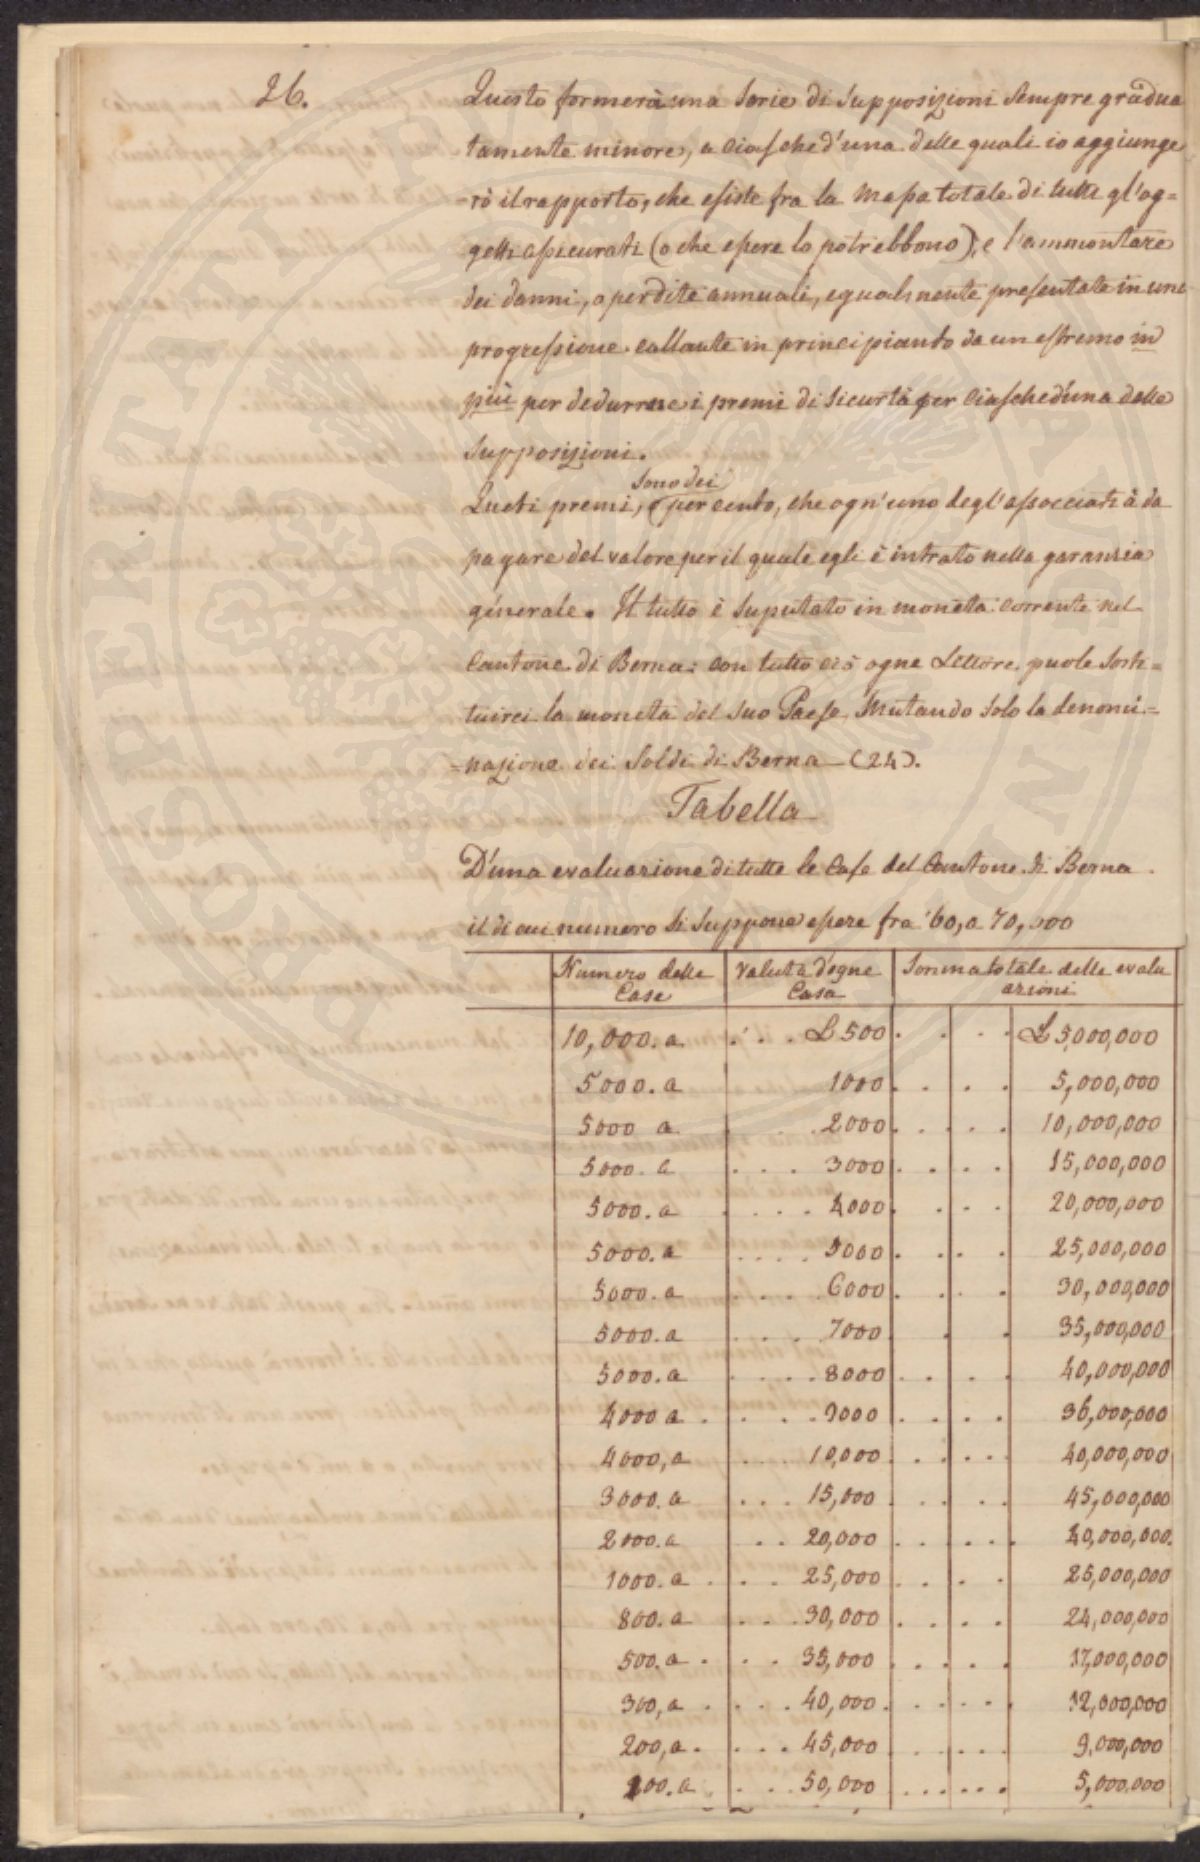 26.
Questo formerà una serie di supposizioni sempre gradua
tamente minore, a ciasched'una delle quali io aggiunge
-rò il rapporto, che esiste fra la massa totale di tutti gl'og=
getti assicurati (o che essere lo potrebbono), e l'ammontare
dei danni, o perdite annuali, egualmente presentate in una
progressione callante in principiando da un estremo in
più per dedurrne i premi di sicurtà per ciasched'una delle
supposizioni.
sono dei
Questi premi, per cento, che ogn'uno degl'associati à da
pagare del valore per il quale egli è intrato nella garanzia
generale. Il tutto è suputato in moneta corrente nel
Cantone di Berna: con tutto ciò ogne Lettore puole sosti=
tuirci la moneta del suo Paese, mutando solo la denomi=
=nazione dei Soldi di Berna (24).
Tabella
D'una evaluazione di tutte le Case del Cantone di Berna
il di cui numero si suppone essere fra 60, a 70,000
Numero delle Case | Valuta d'ogne Casa | Somma totale delle evalu azioni
10,000. a . . . £ 500 . . . . £ 5,000,000
5000. a 1000 . . . . 5,000,000
5000 a . . . 2000 . . . . . 10,000,000
5000. a . . . 3000 . . . . 15,000,000
5000. a . . . . 4000 . . . . 20,000,000
5000. a . . . . 5000 . . . . 25,000,000
5000. a . . . . 6000 . . . . 30,000,000
5000. a . . . 7000 . . . 35,000,000
5000. a . . . . 8000 . . . . 40,000,000
4000 a . . . . 9000 . . . . 36,000,000
4000, a . . . 10,000 . . . . . 40,000,000
3000. a . . . 15,000 . . . . 45,000,000
2000. a . . 20,000 . . . . . . 40,000,000.
1000. a . . . 25,000 . . . . 25,000,000
800. a . . . 30,000 . . . . 24,000,000
500. a . . . 35,000 . . . . . 17,000,000
300, a . . . . 40,000 . . . . . . 12,000,000
200, a . . . . 45,000 . . . . . 9,000,000
100. a . . . . 50,000 . . . . . . 5,000,000
PROSPERITATI PUBLICAE